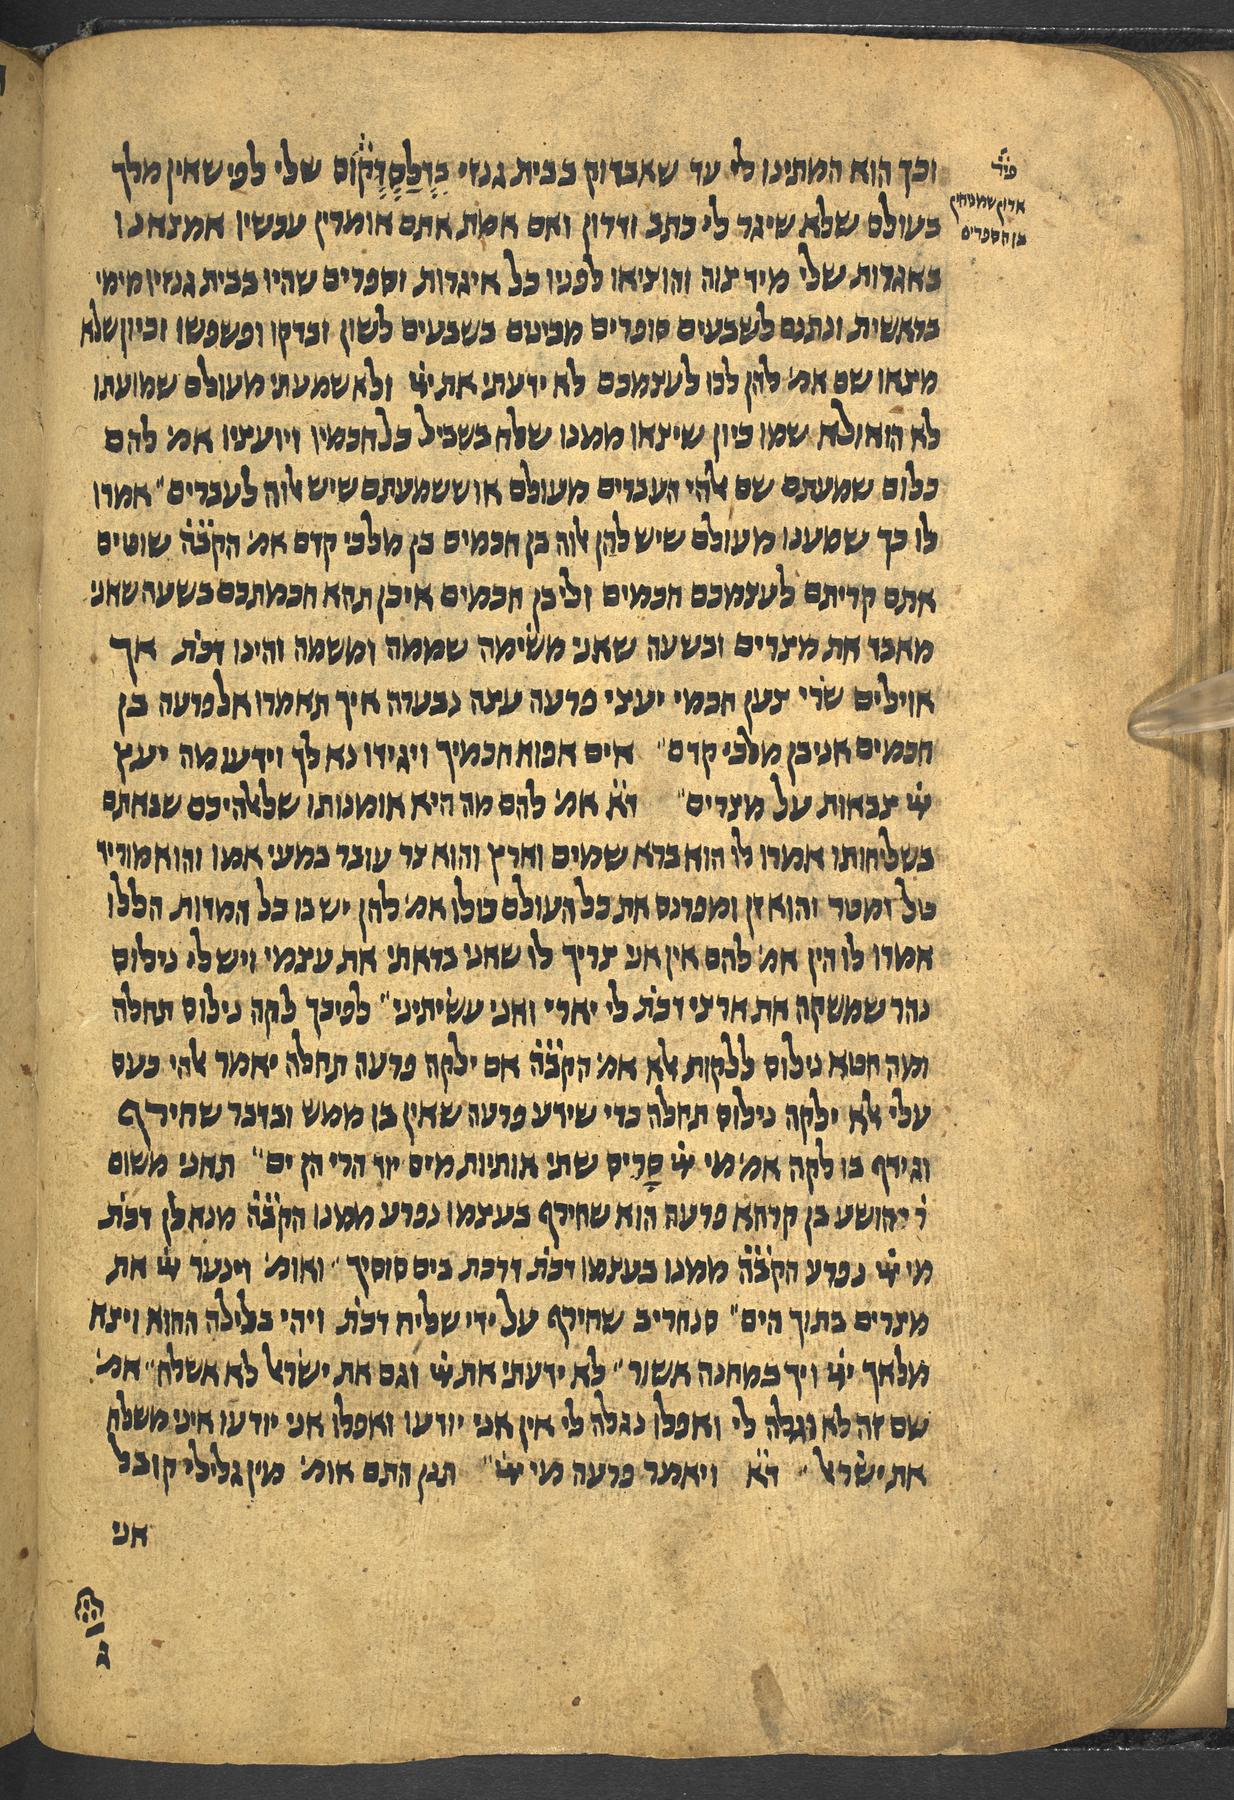 וכך הוא המתינו לי עד שאבדוק בבית גנזי בדלסדקוס שלי לפי שאין מלך
בעולם שלא שיגר לי כתב ודרון ואם אמת אתם אומרין עכשיו אמצאנו
באגרות שלי מיד צוה והוציאו לפניו כל איגרות וספרים שהיו בבית גנזיו מימי
בראשית ונתנם לשבעים סופרים מבינים בשבעים לשון ובדקו ופשפשו וכיון שלא
מצאו שם אמ׳ להן לכו לעצמכם לא ידעתי את יי׳ ולא שמעתי מעולם שמועתו
לא הוא ולא שמו כיון שיצאו ממנו שלח בשביל כל חכמיו ויועציו אמ׳ להם
כלום שמעתם שם אלהי העברים מעולם או ששמעתם שיש אלוה לעברים״ אמרו
לו כך שמענו מעולם שיש להן אלוה בן חכמים בן מלכי קדם אמ׳ הקב׳ה׳ שוטים
אתם קריתם לעצמכם חכמים ולי בן חכמים איכן תהא חכמתכם בשעה שאני
מאבד את מצרים ובשעה שאני משימה שממה ומשמה והינו דכת׳ אך
אוילים שרי צען חכמי יעצי פרעה עצה נבערה איך תאמרו אל פרעה בן
חכמים אני בן מלכי קדם״ אים אפוא חכמיך ויגידו נא לך וידעו מה יעץ
יי׳ צבאות על מצרים״ ד׳א׳ אמ׳ להם מה היא אומנותו של אלהיכם שבאתם
בשליחותו אמרו לו הוא ברא שמים וארץ והוא צר עובר במעי אמו והוא מוריד
טל ומטר והוא זן ומפרנס את כל העולם כולו אמ׳ להן יש בו כל המדות הללו
אמרו לו הין אמ׳ להם אין אני צריך לו שאני בראתי את עצמי ויש לי נילוס
נהר שמשקה את ארצי דכת׳ לי יארי ואני עשיתיני״ לפיכך לקה נילוס תחלה
ומה חטא נילוס ללקות אלא אמ׳ הקב׳ה׳ אם ילקה פרעה תחלה יאמר אלהי כעס
עלי אלא ילקה נילוס תחלה כדי שידע פרעה שאין בו ממש ובדבר שחירף
וגידף בו לקה אמ׳ מי יי׳ סריס שתי אותיות מיס יוד הרי הן ים״ תאני משום
ר׳ יהושע בן קרחא פרעה הוא שחירף בעצמו נפרע ממנו הקב׳ה׳ מנא לן דכת׳
מי יי׳ נפרע הקב׳ה׳ ממנו בעצמו דכת׳ דרכת בים סוסיך״ ואומ׳ וינער יי׳ את
מצרים בתוך הים״ סנחריב שחירף על ידי שליח דכת׳ ויהי בלילה ההוא ויצא
מלאך יי׳ ויך במחנה אשור״ לא ידעתי את יי׳ וגם את ישראל לא אשלח״ אמ׳
שם זה לא נגלה לי ואפלו נגלה לי אין אני יודעו ואפלו אני יודעו איני משלח
את ישראל״ ד׳א׳ ויאמר פרעה מי יי׳״ תנן התם אומ׳ מין גלילי קובל
אני